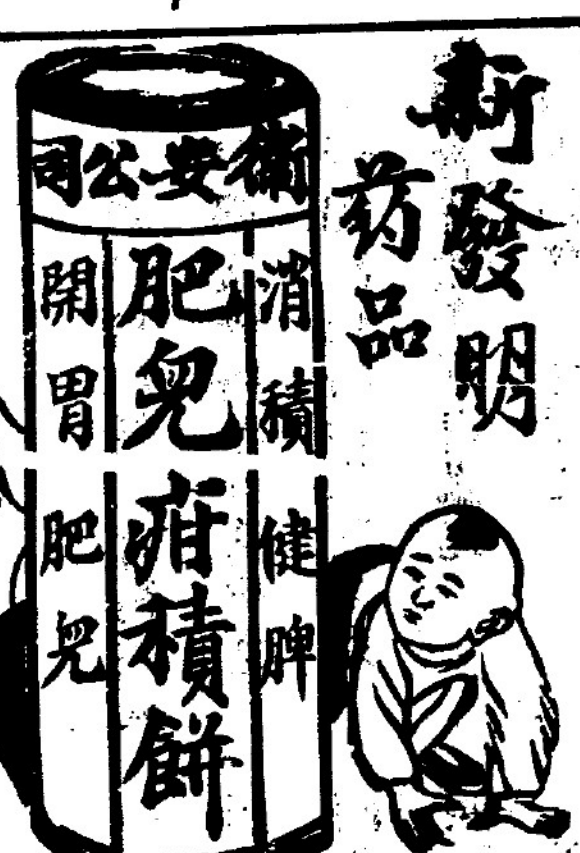 新發明
药品
衛安公司
消積健脾
肥兒疳積餅
開胃肥兒